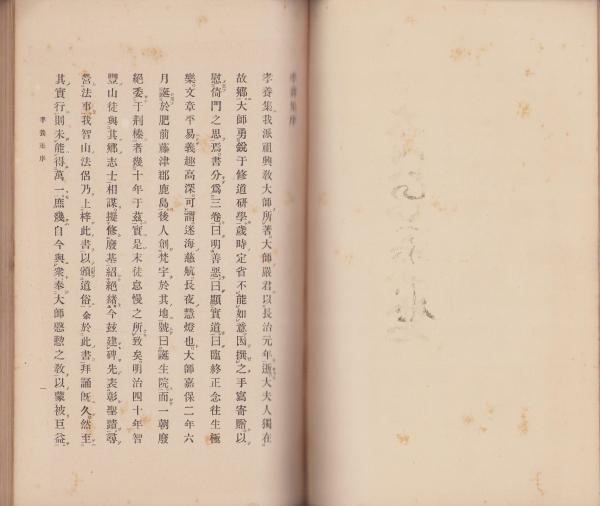 孝養集序
孝養集我派祖興教大師所著大師嚴君以長治元年逝大夫人獨在
故鄕大師勇銳于修道硏學歲時定省不能如意因撰之手寫寄贈以
慰倚門之思焉書分爲三卷曰明善惡曰顯實道曰臨終正念往生極
樂文章平易義趣高深可謂迷海慈航長夜慧燈也大師嘉保二年六
月誕於肥前藤津郡鹿島後人創梵宇於其地號曰誕生院而一朝廢
絕委于荆榛者幾十年于茲實是末徒怠慢之所致矣明治四十年智
豐山徒與其鄕志士相謀擬修廢基紹絕緖今茲建碑先表彰聖蹟尋
營法事我智山法侶乃上梓此書以頒道俗余於此書拜誦旣久然至
其實行則未能得萬一庶幾自今與衆奉大師慇懃之敎以蒙被巨益
孝養集序
一